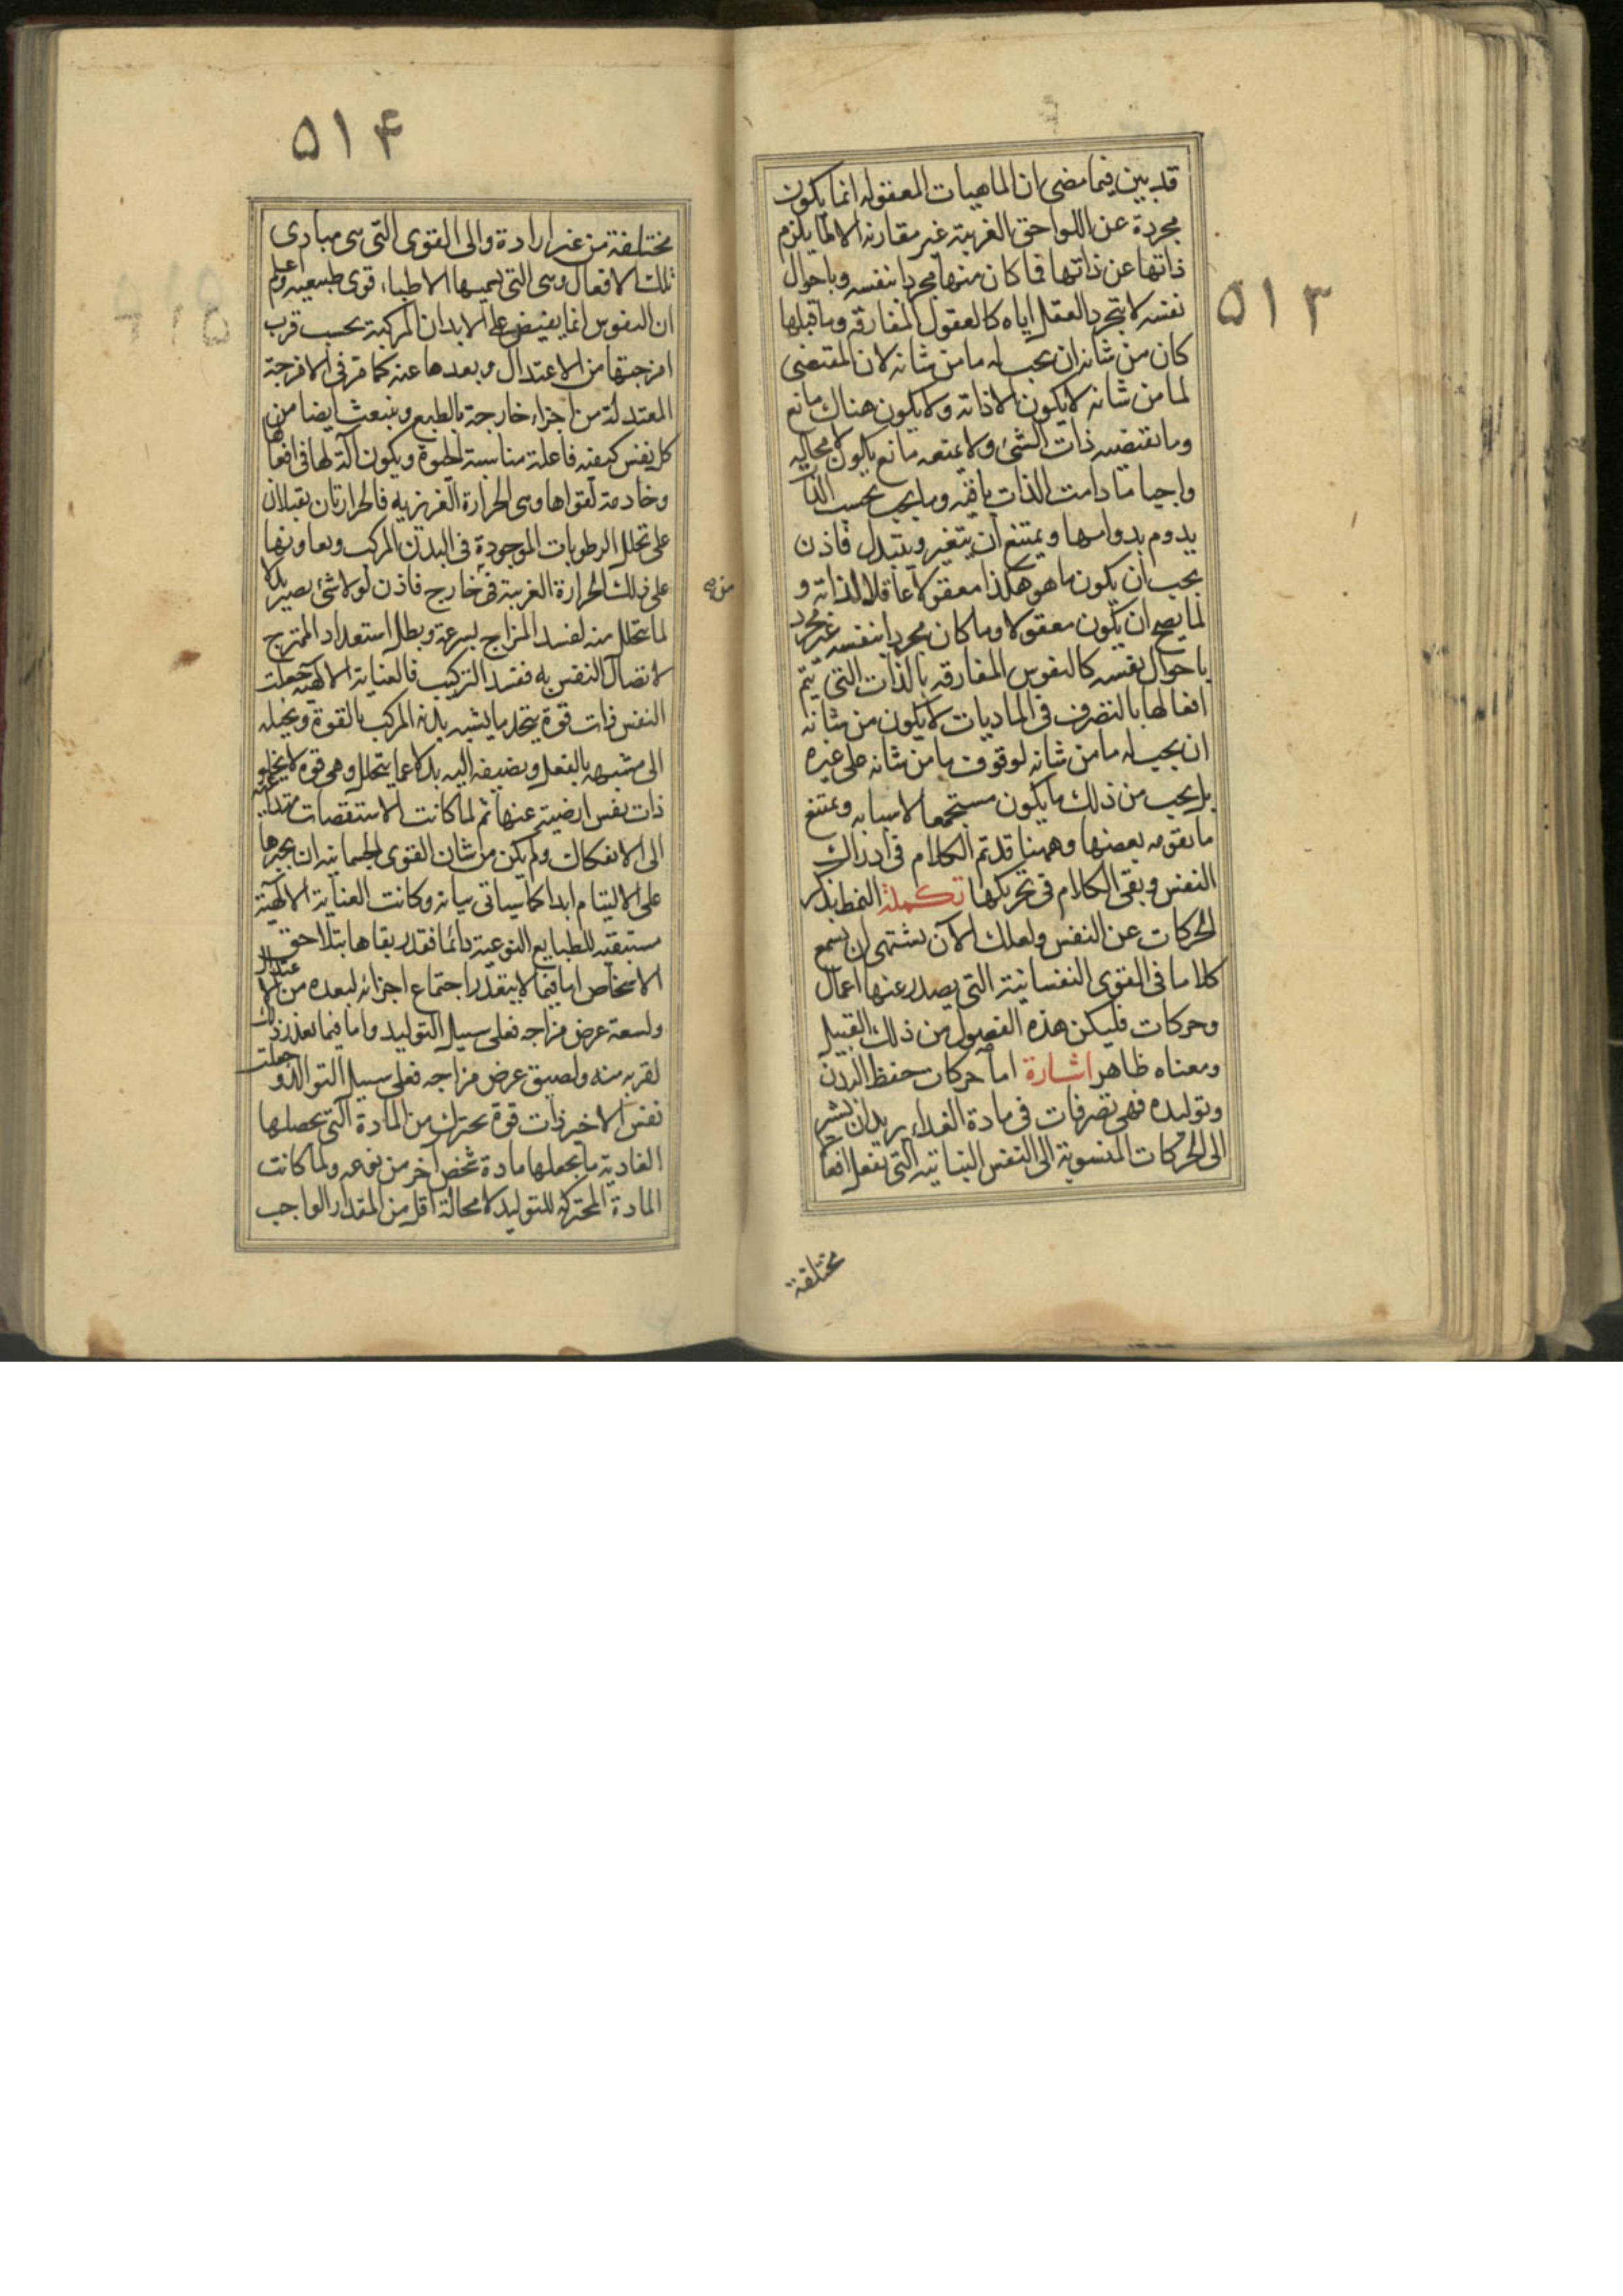 ۵۱۳
قد بين فيما مضى ان الماهيات المعقوله انما يكون
مجردة عن اللواحق الغريبة غير مقارنه الا لما يلزم
ذاتها عن ذاتها فما كان منها مجردا بنفسه وباحوال
نفسه لا بتجريد العقل اياه كالعقول المفارقه وما قبلها
كان من شانه ان يجب له ما من شانه لان المقتضى
لما من شانه لا يكون الا ذاته ولا يكون هناك مانع
وما يقتضيه ذات الشئ ولا يمنعه مانع يكون لا محاله
واجبا ما دامت الذات باقيه وما يجب بحسب الذات
يدوم بدوامها ويمتنع ان يتغير ويتبدل فاذن
يجب ان يكون ما هو هكذا معقولا عاقلا لذاته و
لما يصح ان يكون معقولا وما كان مجردا بنفسه غير مجرد
باحوال نفسه كالنفوس المفارقه بالذات التى يتم
افعالها بالتصرف فى الماديات لا يكون من شانه
ان يجب له ما من شانه لوقوف ما من شانه على غيره
بل يجب من ذلك ما يكون مستجمعا لاسبابه ويمتنع
ما يفوته بعضها وههنا قد تم الكلام فى ادراك
النفس وبقى الكلام فى تحريكها تكملة النمط بذكر
الحركات عن النفس ولعلك الآن تشتهى ان تسمع
كلاما فى القوى النفسانية التى يصدر عنها اعمال
وحركات فليكن هذه الفصول من ذلك القبيل
ومعناه ظاهر اشارة اما حركات حفظ البدن
وتوليده فهى تصرفات فى مادة الغداء يريد ان يشير
الى الحركات المنسوبة الى النفس النباتيه التى تفعل افعالا
مختلفة
۵۱۴
مختلفة من غير ارادة والى القوى التى هى مبادى
تلك الافعال وهى التى يسميها الاطباء قوى طبيعيه واعلم
ان النفوس انما يفيض على الابدان المركبة بحسب قرب
امزجتها من الاعتدال وبعدها عنه كما مر فى الامزجة
المعتدلة من اجزاء خارجة بالطبع وينبعث ايضا من
كل نفس كيفيه فاعلة مناسبة للحيوة ويكون آلة لها فى افعالها
وخادمة لقواها وهى الحرارة الغريزيه فالحرارتان تقبلان
على تحلل الرطوبات الموجودة فى البدن المركب ويعاونها
على ذلك الحرارة الغريبة من خارج فاذن لولا شئ يصير بدلا
لما يتحلل منه لفسد المزاج بسرعة وبطل استعداد الممتزج
لاتصال النفس به ففسد التركيب فالعناية الالهيه جعلت
النفس ذات قوة يتخذ ما يشبه بدنه المركب بالقوة ويحيله
الى مشبهه بالفعل ويضيفه اليه بدلا عما يتحلل وهى قوة لا يخلو
ذات نفس ارضية عنها ثم لما كانت الاستقصات متداعيه
الى الانفكاك ولم يكن من شان القوى الجسمانيه ان يجبرها
على الالتيام ابدا كما سياتى بيانه وكانت العناية الالهية
مستبقيه للطبايع النوعية دائما فقدر بقاها بتلاحق
الاشخاص اما فيما لا يتعذر اجتماع اجزائه لبعده من الاعتدال
ولسعة عرض مزاجه فعلى سبيل التوليد واما فيما تعذر ذلك
لقربه منه ولضيق عرض مزاجه فعلى سبيل التوالد وجعلت
نفس الاخير ذات قوة يخترل من المادة التى يحصلها
الغاديه ما يجعلها مادة شخص آخر من نوعه ولما كانت
المادة المخترلة للتوليد لا محالة اقل من المقدار الواجب